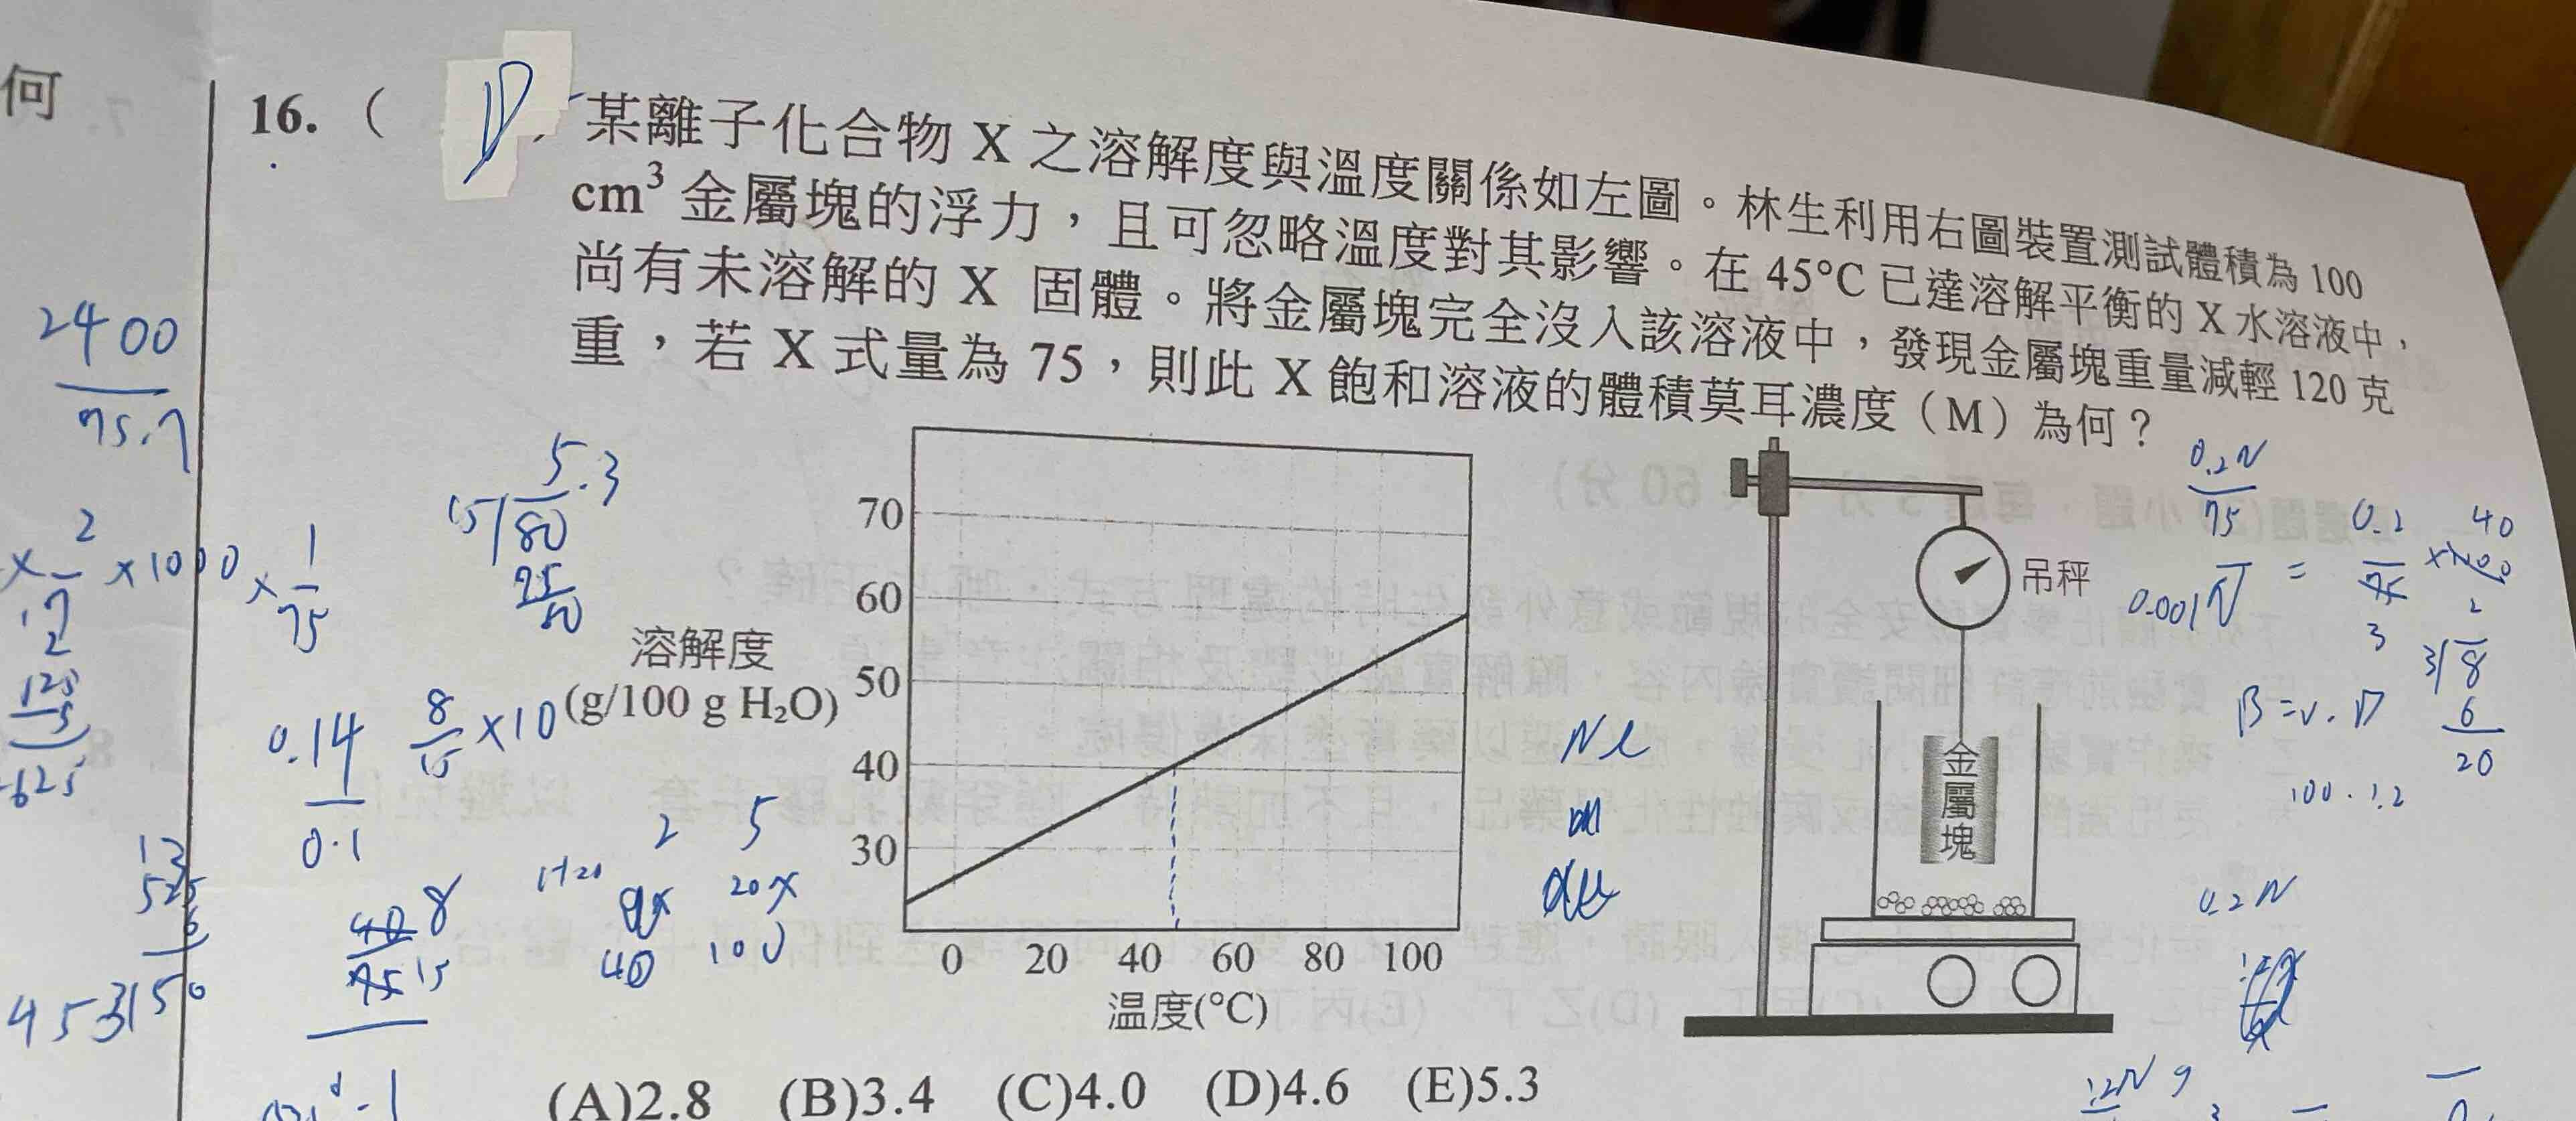 何
16. ( D ) 某離子化合物 X 之溶解度與溫度關係如左圖。林生利用右圖裝置測試體積為 100
cm³ 金屬塊的浮力，且可忽略溫度對其影響。在 45°C 已達溶解平衡的 X 水溶液中，
尚有未溶解的 X 固體。將金屬塊完全沒入該溶液中，發現金屬塊重量減輕 120 克
重，若 X 式量為 75，則此 X 飽和溶液的體積莫耳濃度（M）為何？
2400
75.7
5.3
15/80
75
50
× 2/17 × 1000 × 1/75
0.14
0.1
8/15 × 10
溶解度
(g/100 g H₂O)
70
60
50
40
30
0 20 40 60 80 100
溫度(°C)
吊秤
金屬塊
0.2N
75
0.001
= 0.2
40
3/8
6
20
B = V . D
100 . 1.2
0.2N
2 5
20x
40 100
40 8
75 15
525
6
3150
(A)2.8 (B)3.4 (C)4.0 (D)4.6 (E)5.3